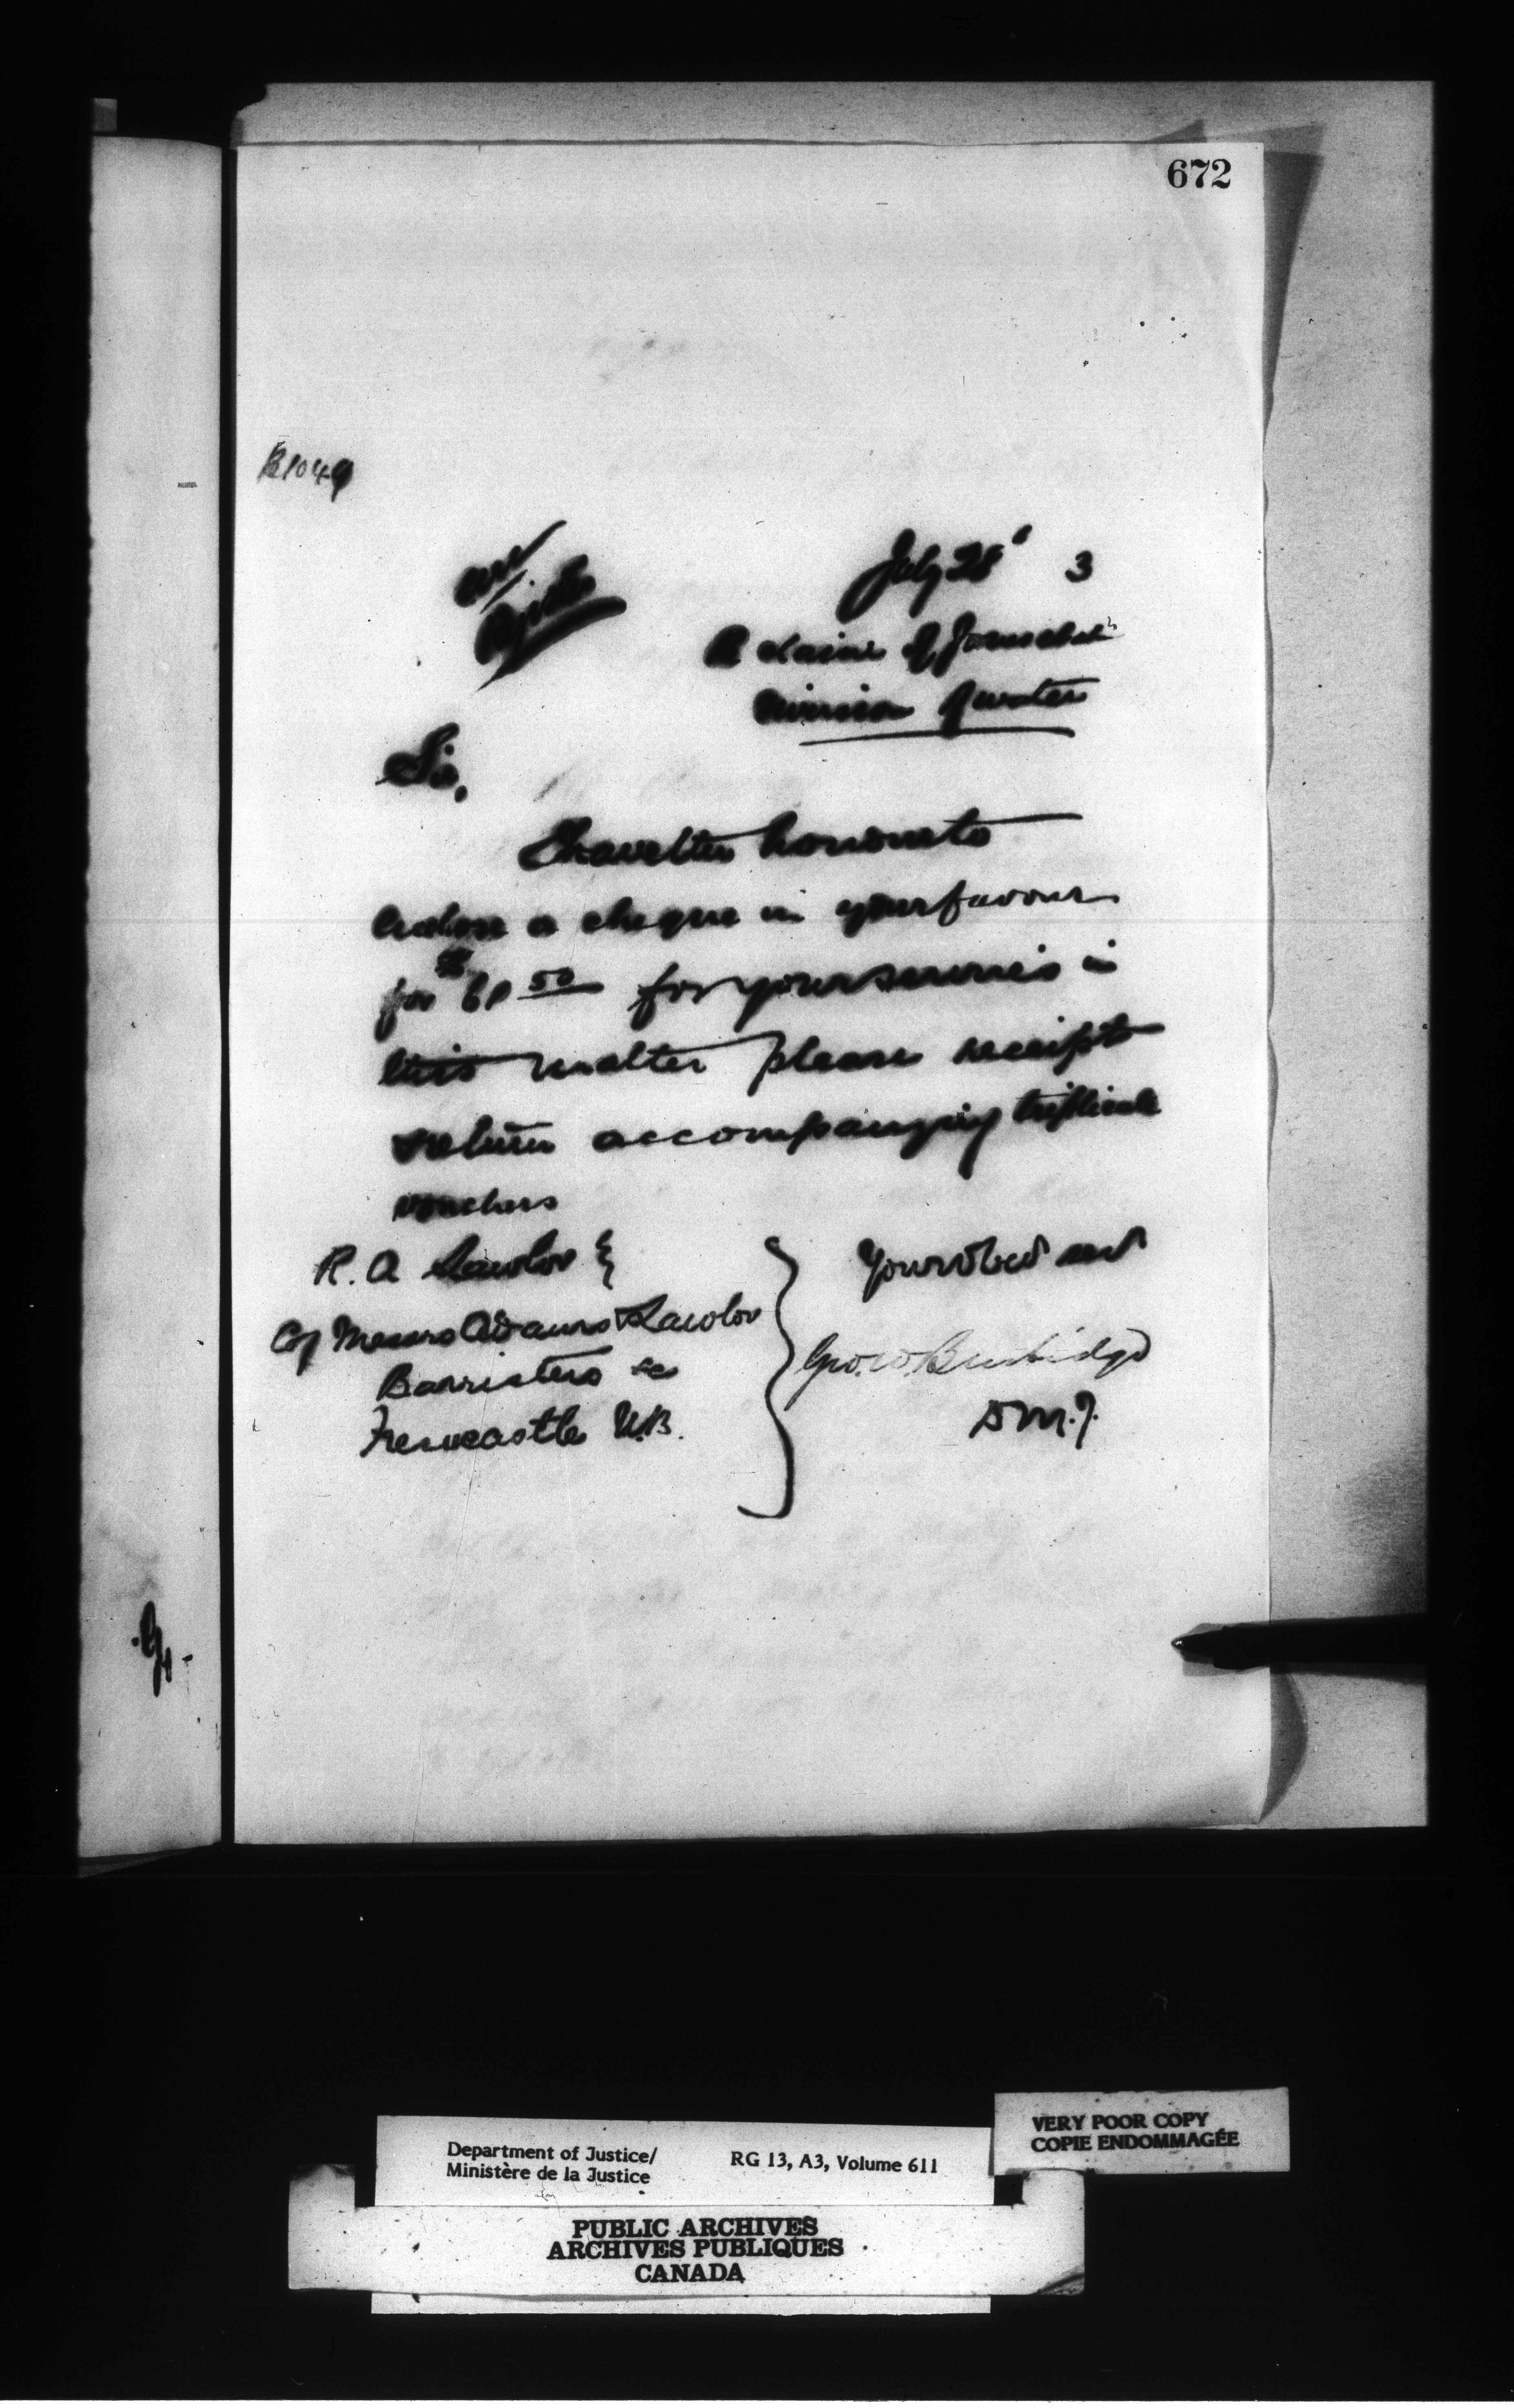 672
B1049
July 28' 3
R claim of
Sir,
I have the honour to
enclose a cheque in your favour
for $61 50 for your services in
this matter please receipt
return accompanying triplicate
vouchers
R. A Lawlor
Of Messrs Adams & Lawlor
Barristers &c
Newcastle N.B.
Your Obed sert
Geo. W. Burbidge
D M. J.
VERY POOR COPY
COPIE ENDOMMAGÉE
Department of Justice/
Ministère de la Justice
RG 13, A3, Volume 611
PUBLIC ARCHIVES
ARCHIVES PUBLIQUES
CANADA